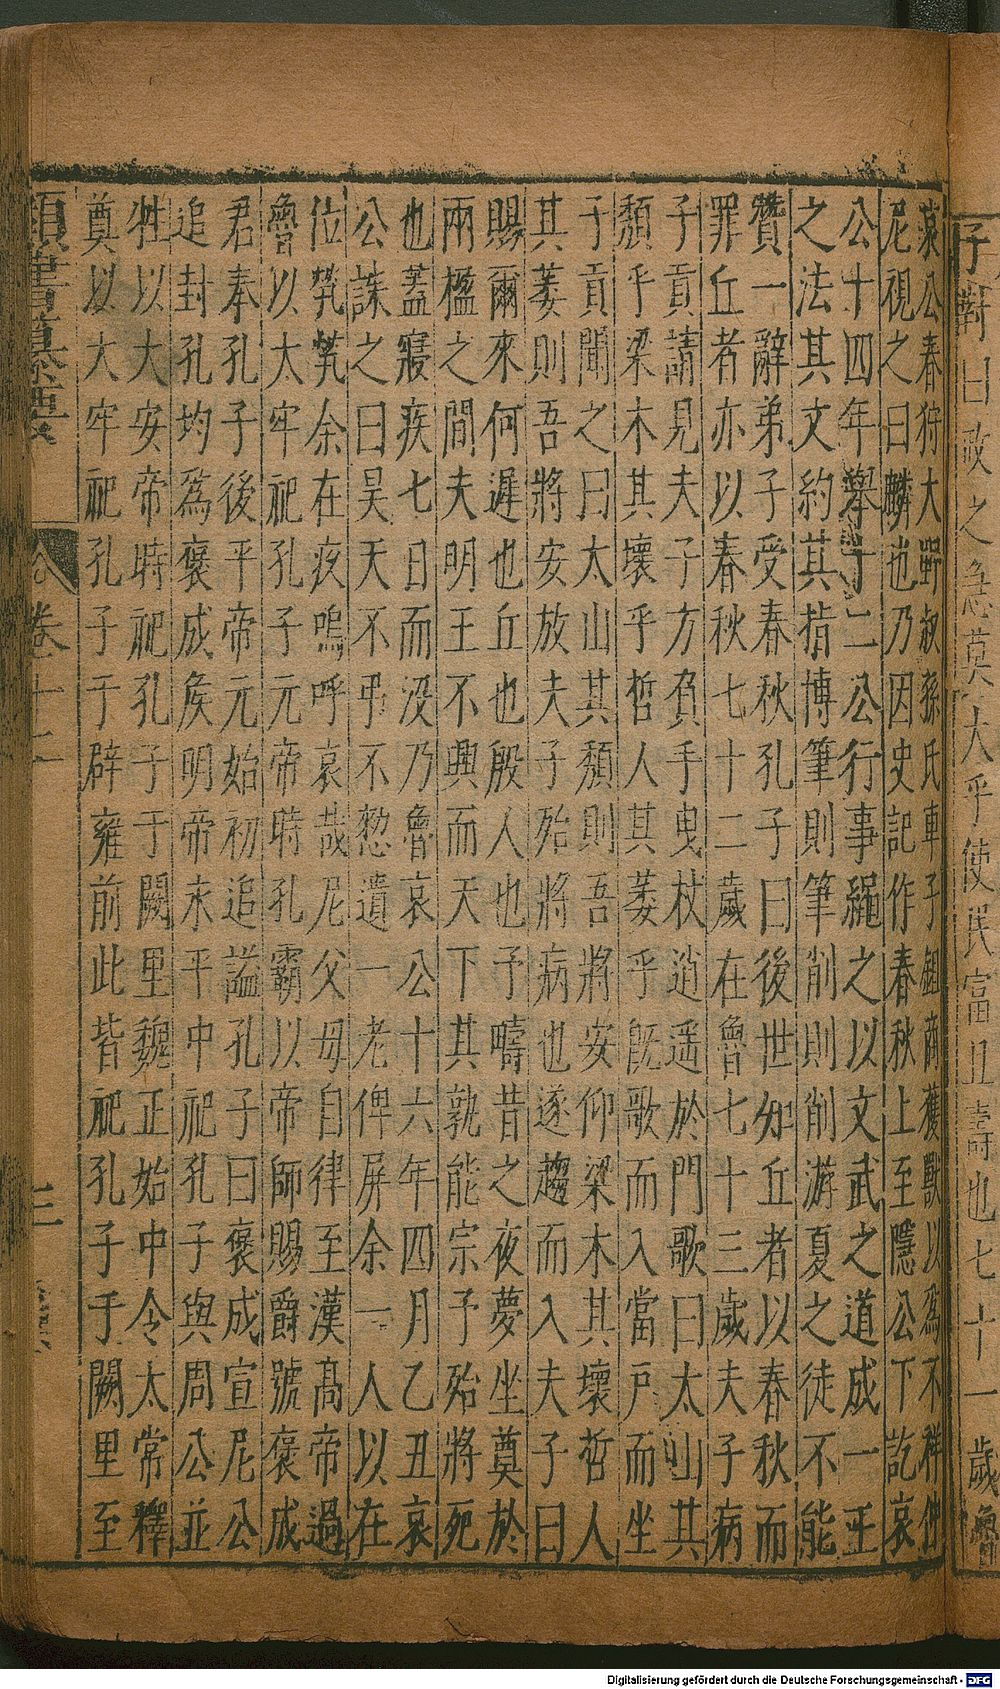 子對曰政之急莫大乎使民富且壽也七十一歲魯
哀公春狩大野叔孫氏車子鉏商獲獸以爲不祥仲
尼視之曰麟也乃因史記作春秋上至隱公下訖哀
公十四年舉十二公行事繩之以文武之道成一王
之法其文約其指博筆則筆削則削游夏之徒不能
贊一辭弟子受春秋孔子曰後世知丘者以春秋而
罪丘者亦以春秋七十二歲在魯七十三歲夫子病
子貢請見夫子方負手曳杖逍遥於門歌曰太山其
頹乎梁木其壞乎哲人其萎乎旣歌而入當戸而坐
子貢聞之曰太山其頹則吾將安仰梁木其壞哲人
其萎則吾將安放夫子殆將病也遂趨而入夫子曰
賜爾來何遲也丘也殷人也予疇昔之夜夢坐奠於
兩楹之間夫明王不興而天下其孰能宗予殆將死
也蓋寢疾七日而没乃魯哀公十六年四月乙丑哀
公誄之曰昊天不弔不憗遺一老俾屏余一人以在
位煢煢余在疚嗚呼哀哉尼父毋自律至漢高帝過
魯以太牢祀孔子元帝時孔霸以帝師賜爵號褒成
君奉孔子後平帝元始初追謚孔子曰褒成宣尼公
追封孔均爲褒成侯明帝永平中祀孔子與周公並
牲以大安帝時祀孔子于闕里魏正始中令太常釋
奠以大牢祀孔子于辟雍前此皆祀孔子于闕里至
類書纂要 卷十二 三
Digitalisierung gefördert durch die Deutsche Forschungsgemeinschaft - DFG